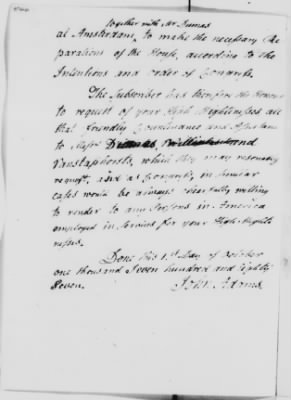 together with Mr Dumas
at Amsterdam, to make the necessary Re
parations of the House, according to the
Intentions and order of Congress.
The Subscriber has therefore the Honour
to request of your High Mightinesses all
that friendly Countenance and Assistance
to Messrs Dumas Willink and
Vanstaphorsts, which they may reasonably
request, and as Congress, in Similar
cases would be always chearfully willing
to render to any Persons in America
employed in Service for your High Mighti
nesses.
Done this 1.st Day of October
one thousand Seven hundred and Eighty
Seven.
John Adams.